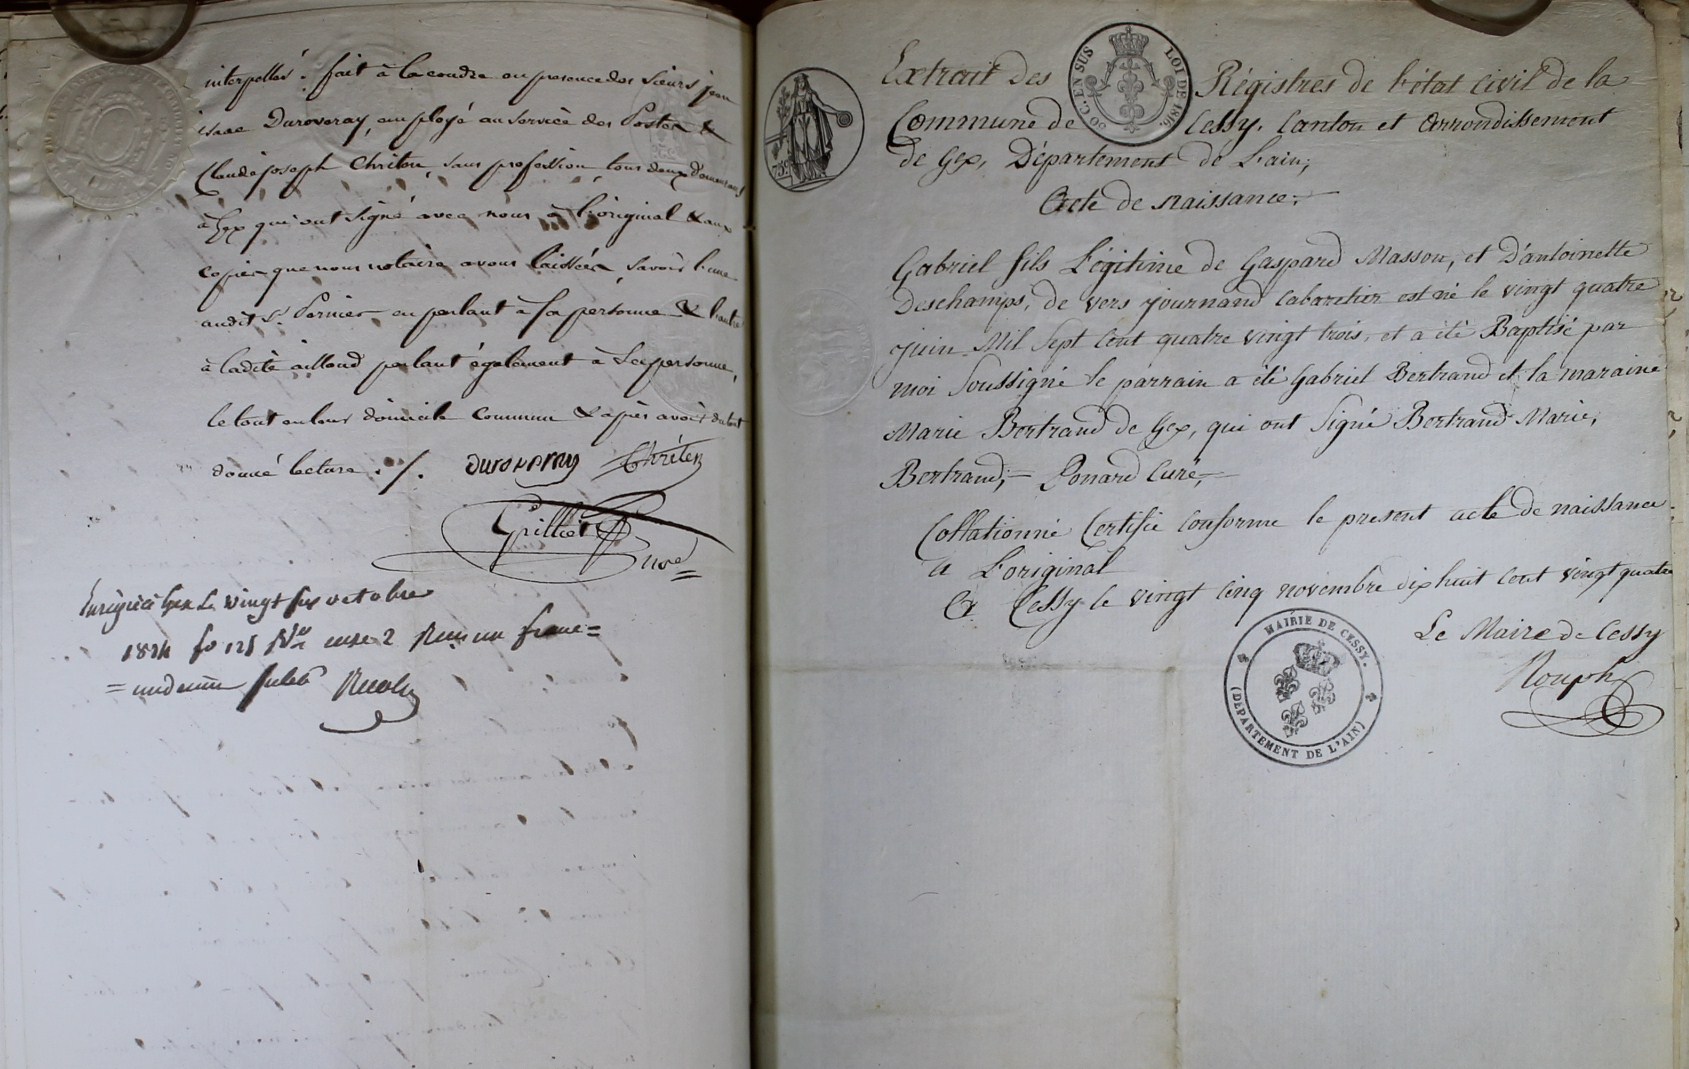 interpellés. fait à la coudre en présence des Sieurs jean
isaac Duroveray, employé au service des Postes &
Claude joseph Chriten, sans profession, tous deux demeurant
à Gex qui ont signé avec nous à l'original & aux
copies que nous notaire avons laissées savoir l'une
audit Sr. Pernier en parlant à sa personne & l'autre
à ladite aillaud parlant également à sa personne,
le tout en leur domicile commun & après avoir du tout
donné lecture ./.
Duroveray Chriten
Grilliet
Enrégistré à Gex le vingt six octobre
1824 fo 121 case 2 Reçu un franc =
= 
Extrait des Régistres de l'état Civil de la
Commune de Cessy, Canton et Arrondissement
de Gex, Département de l'ain,
Acte de naissance.
Gabriel fils Légitime de Gaspard Masson, et D'antoinette
Deschamps, de vers journand Cabaretier est né le vingt quatre
juin Mil Sept Cent quatre vingt trois, et a été Baptisé par
moi Soussigné le parrain a été Gabriel Bertrand et la maraine
Marie Bertrand de Gex, qui ont Signé Bertrand Marie,
Bertrand, — Ponard Curé, —
Collationné Certifié Conforme le present acte de naissance
a L'original
A Cessy le vingt Cinq novembre dix huit Cent vingt quatre
Le Maire de Cessy
Rouph
50 C. EN SUS
LOI DE 1816.
75 c.
MAIRIE DE CESSY.
(DÉPARTEMENT DE L'AIN)